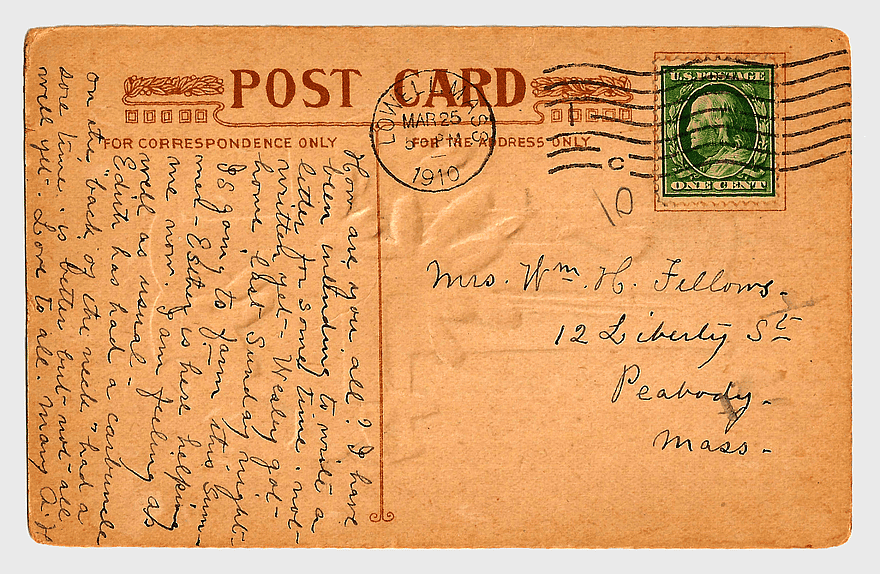 POST CARD
FOR CORRESPONDENCE ONLY
FOR THE ADDRESS ONLY
LOWELL, MASS
MAR 25
5 - PM
1910
U.S. POSTAGE
ONE CENT
1
C
10
Mrs. Wm. H. Fellows.
12 Liberty St
Peabody.
Mass.
How are you all? I have
been intending to write a
letter for some time. not
written yet - Wesley got
home last Sunday night -
Is going to farm it this Sum-
mer - Esther is here helping
me now. I am feeling as
well as usual.
Edith has had a carbuncle
on the back of the neck & had a
sore time. is better but not all
well yet. Love to all. Mary A. H